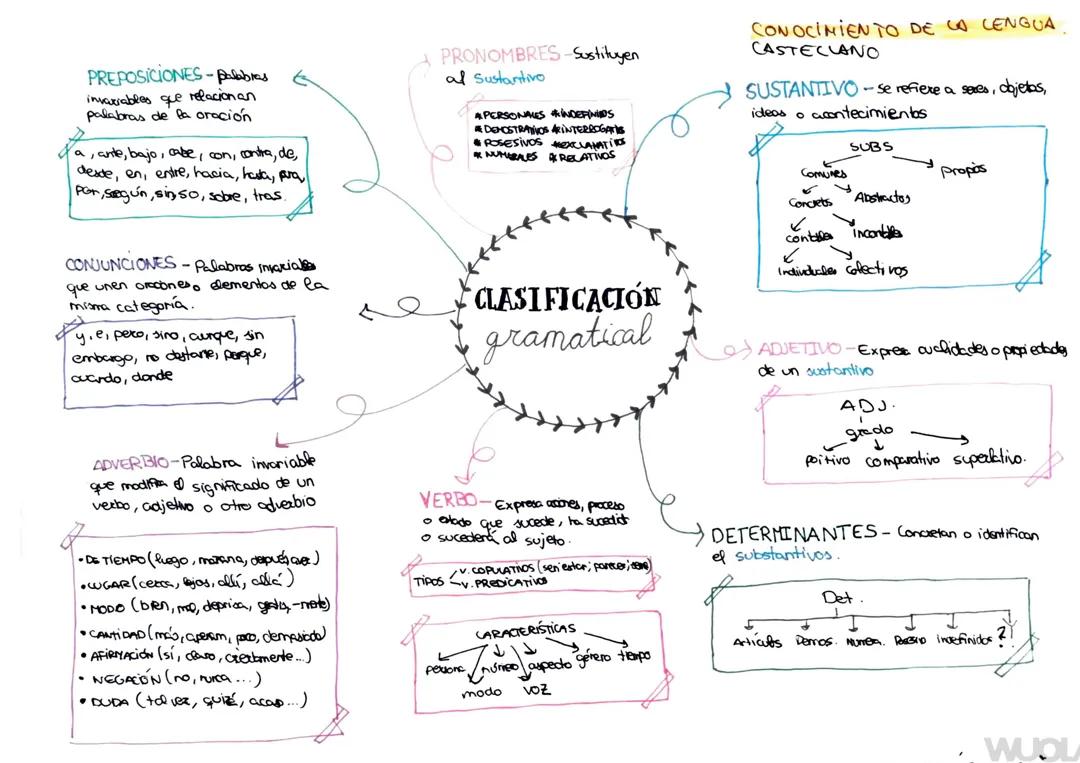 CONOCIMIENTO DE LA LENGUA.
CASTELLANO
CLASIFICACIÓN
gramatical
PREPOSICIONES - Palabras
invariables que relacionan
palabras de la oración
a, ante, bajo, cabe, con, contra, de,
desde, en, entre, hacia, hasta, para,
por, según, sin, so, sobre, tras.
PRONOMBRES - Sustituyen
al Sustantivo
* PERSONALES * INDEFINIDOS
* DEMOSTRATIVOS * INTERROGATIVOS
* POSESIVOS * EXCLAMATIVOS
* NUMERALES * RELATIVOS
SUSTANTIVO - se refiere a seres, objetos,
ideas o acontecimientos
SUBS
Comunes propios
Concrets Abstractos
contables Incontables
Individuales Colectivos
CONJUNCIONES - Palabras invariables
que unen oraciones o elementos de la
misma categoría.
y, e, pero, sino, aunque, sin
embargo, no obstante, porque,
cuando, donde
ADJETIVO - Expresa cualidades o propiedades
de un sustantivo
ADJ.
grado
poitivo comparativo superlativo.
ADVERBIO - Palabra invariable
que modifica el significado de un
verbo, adjetivo o otro adverbio
• DE TIEMPO (luego, mañana, después,
• LUGAR (cerca, lejos, allí, allá)
• MODO (bien, mal, deprisa, gratis, -mente)
• CANTIDAD (más, apenas, poco, demasiado)
• AFIRMACIÓN (sí, claro, ciertamente...)
• NEGACIÓN (no, nunca ...)
• DUDA (tal vez, quizé, acaso...)
VERBO - Expresa acciones, proceso
o estado que sucede, ha sucedido
o sucederá al sujeto.
TIPOS v. COPULATIVOS (ser; estar; parecer;
v. PREDICATIVOS
CARACTERÍSTICAS
persona número aspecto género tiempo
modo voz
DETERMINANTES - Concretan o identifican
el substantivos.
Det.
Artículos Demos. Numera. Indefinidos ?!
WUOLA